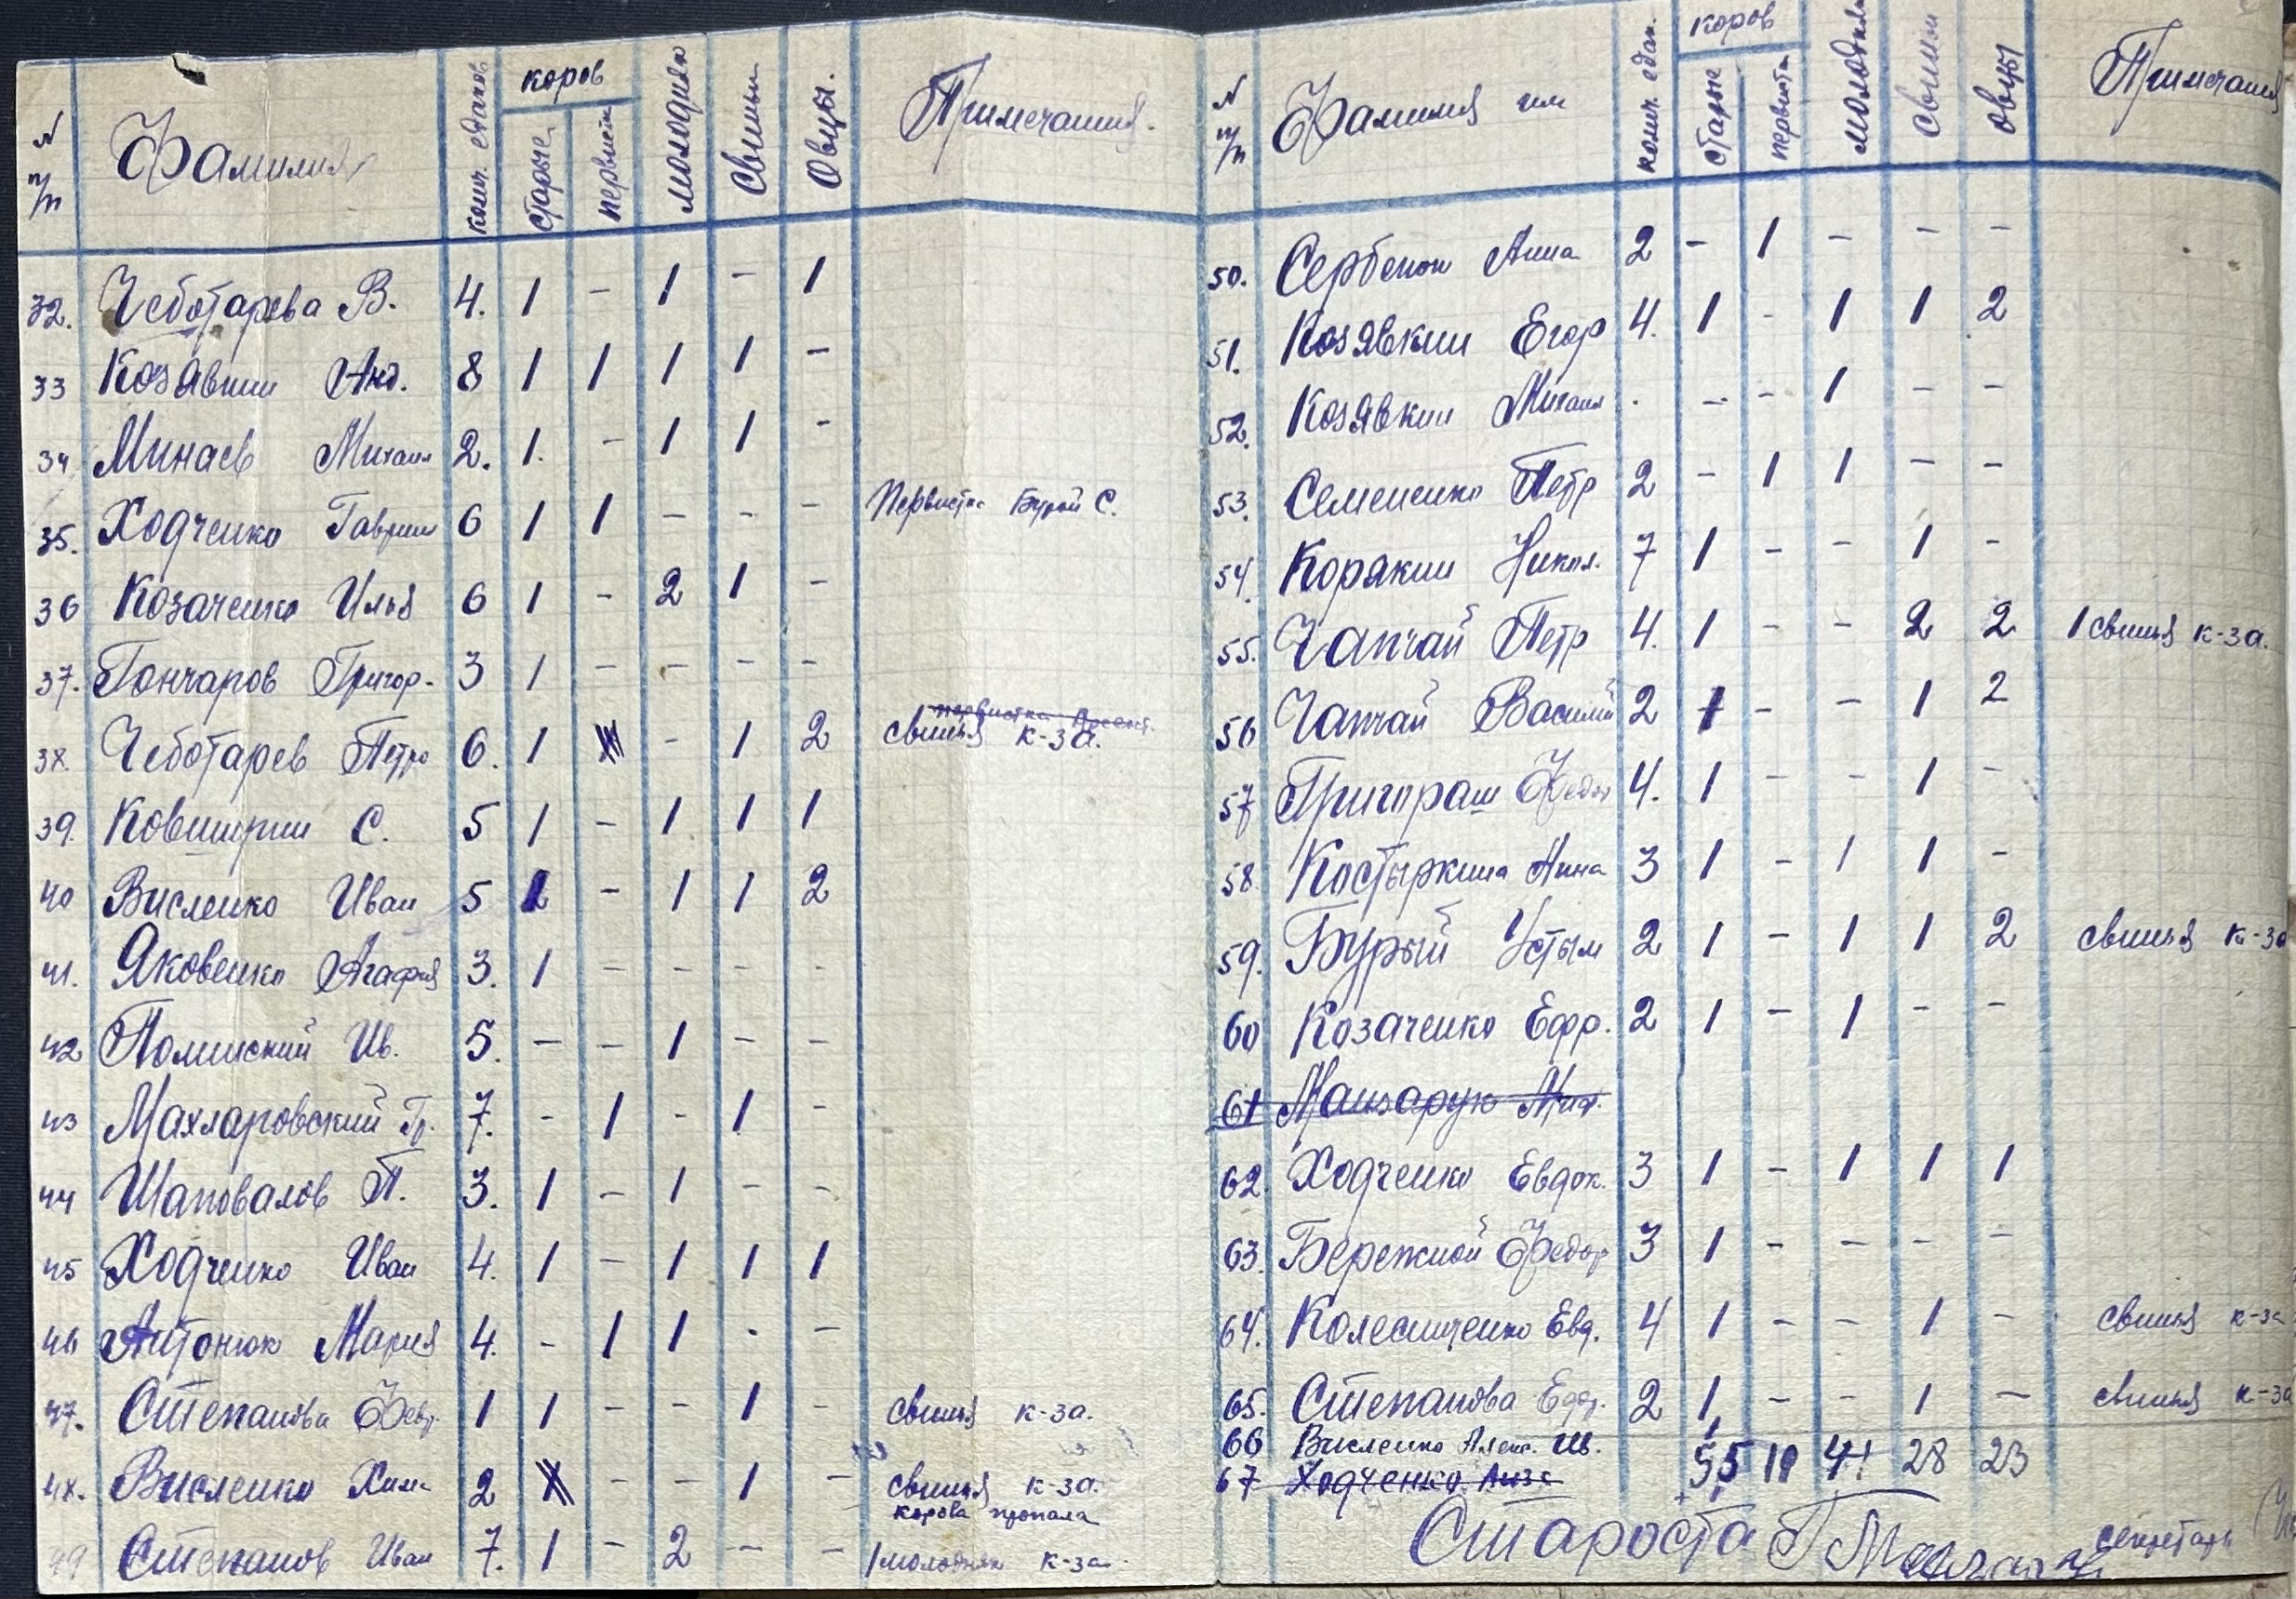 N п/п Фамилия колич. едаков коров старые первистк молодняк Свиньи Овцы. Примечания.
32. Чеботарева В. 4. 1 - 1 - 1
33 Козявкин Анд. 8 1 1 1 1 -
34 Минаев Михаил 2. 1. - 1 1 -
35. Ходченко Гаврил 6 1 1 - - - Первистка Бурой С.
36 Козаченко Илья 6 1 - 2 1 -
37. Гончаров Григор. 3 1 - - - -
38. Чеботарев Петро 6. 1 - 1 2 свинья к-за.
39. Ковширин С. 5 1 - 1 1 1
40 Висленко Иван 5 - 1 1 2
41. Яковенко Агафия 3. 1 - - - -
42 Полинский Ив. 5. - - 1 - -
43 Махларовский Гр. 7. - 1 - 1 -
44 Шаповалов П. 3. 1 - 1 - -
45 Ходченко Иван 4. 1 - 1 1 1
46 Антонюк Мария 4. - 1 1 . -
47. Степанова 1 1 - - 1 - свинья к-за.
48. Висленко Хима 2 - - 1 - свинья к-за.
корова пропала
49 Степанов Иван 7. 1 - 2 - - 1 молодняк к-за.
N п/п Фамилия им колич. едак. коров старые первистк молодняк Свиньи Овцы Примечания
50. Сербенюк Анна 2 - 1 - - -
51. Козявкин Егор 4. 1 - 1 1 2
52. Козявкин Михаил . - - 1 - -
53. Семененко Петр 2 - 1 1 - -
54. Корякин Никол. 7 1 - - 1 -
55. Чапчай Петр 4. 1 - - 2 2 1 свинья к-за.
56 Чапчай Василий 2 1 - - 1 2
57 Григораш Федор 4. 1 - - 1 -
58 Костыркина Анна 3 1 - 1 1 -
59. Бурый Устым 2 1 - 1 1 2 свинья к-за
60 Козаченко Ефр. 2 1 - 1 - -
61 Манзарук Мих.
62. Ходченко Евдок. 3 1 - 1 1 1
63. Бережной Федор 3 1 - - - -
64. Колесниченко Евд. 4 1 - - 1 - свинья к-за
65. Степанова Ефр. 2 1 - - 1 - свинья к-за
66 Висленко Алекс. Ив. 55 10 41 28 23
67 Ходченко Лиза
Староста секретарь